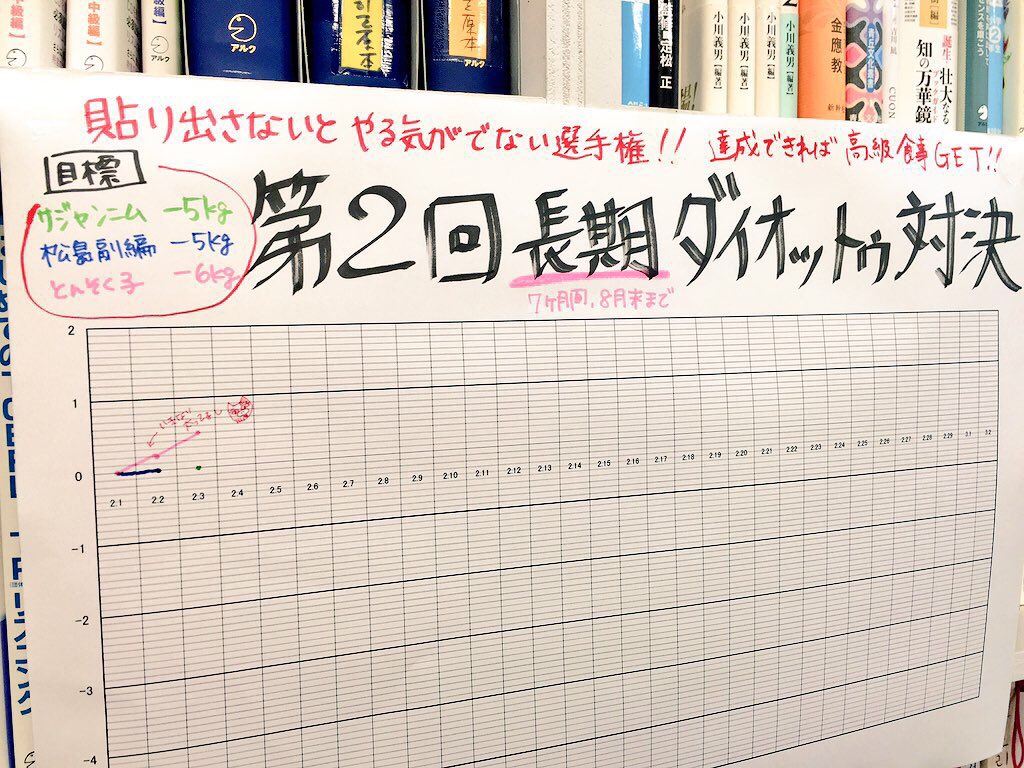 中級編】
中級編】
編】
アルク
アルク
アルク
小川義男【編著】
小川義男【編著】
小川義男【編著】
小川義男【編著】
金應教
CUON
知の万華鏡
誕生・壮大なる
貼り出さないとやる気がでない選手権!! 達成できれば高級食事GET!!
目標
サジャンニム -5kg
松島副編 -5kg
とんそく子 -6kg
第2回長期ダイオットゥ対決
7ヶ月間、8月末まで
2
1
0
2.1 2.2 2.3 2.4 2.5 2.6 2.7 2.8 2.9 2.10 2.11 2.12 2.13 2.14 2.15 2.16 2.17 2.18 2.19 2.20 2.21 2.22 2.23 2.24 2.25 2.26 2.27 2.28 2.29 3.1 3.2
-1
-2
-3
-4